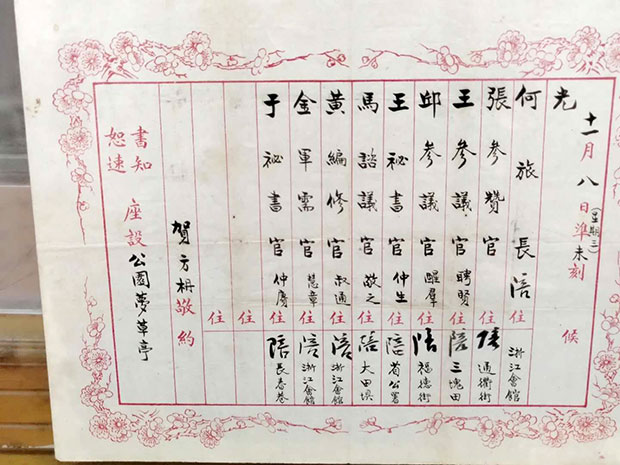 十一月八日(星期三)準未刻 候
光
何旅長 陪 住 浙江會館
張參贊官 住 陪 通衢街
王參議官 聘賢 住 陪 三塊田
邱參議官 醒羣 住 陪 福德街
王祕書官 仲生 住 陪 省公署
馬諮議官 敬之 住 陪 大田壩
黃編修官 叔通 住 陪 浙江會館
金軍需官 慧章 住 陪 浙江會館
于祕書官 住 陪 長春巷
住
住
賀方枬敬約
書知
恕速
座設公園夢草亭